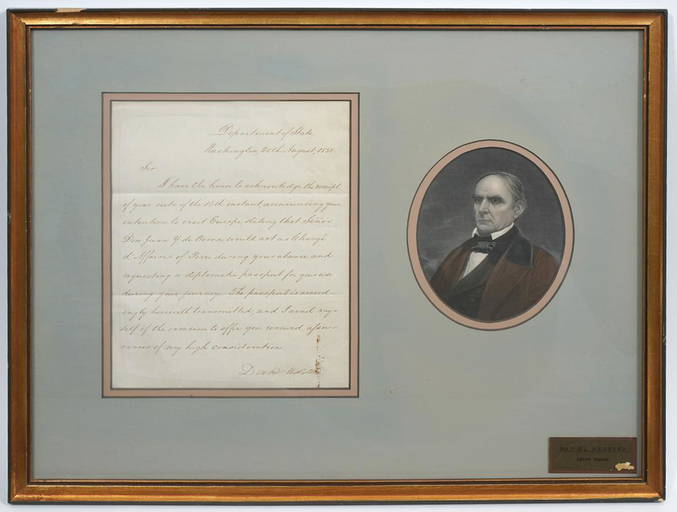 Department of State
Washington, 20th August, 1851.
Sir,
I have the honor to acknowledge the receipt
of your note of the 18th instant announcing your
intention to visit Europe, stating that Señor
Don Juan Y. de Osma would act as Chargé
d'Affaires of Peru during your absence and
requesting a diplomatic passport for your use
during your journey. The passport is accord
ingly herewith transmitted, and I avail my-
self of the occasion to offer you renewed assu-
rances of my high consideration
Dan Webster
DANIEL WEBSTER